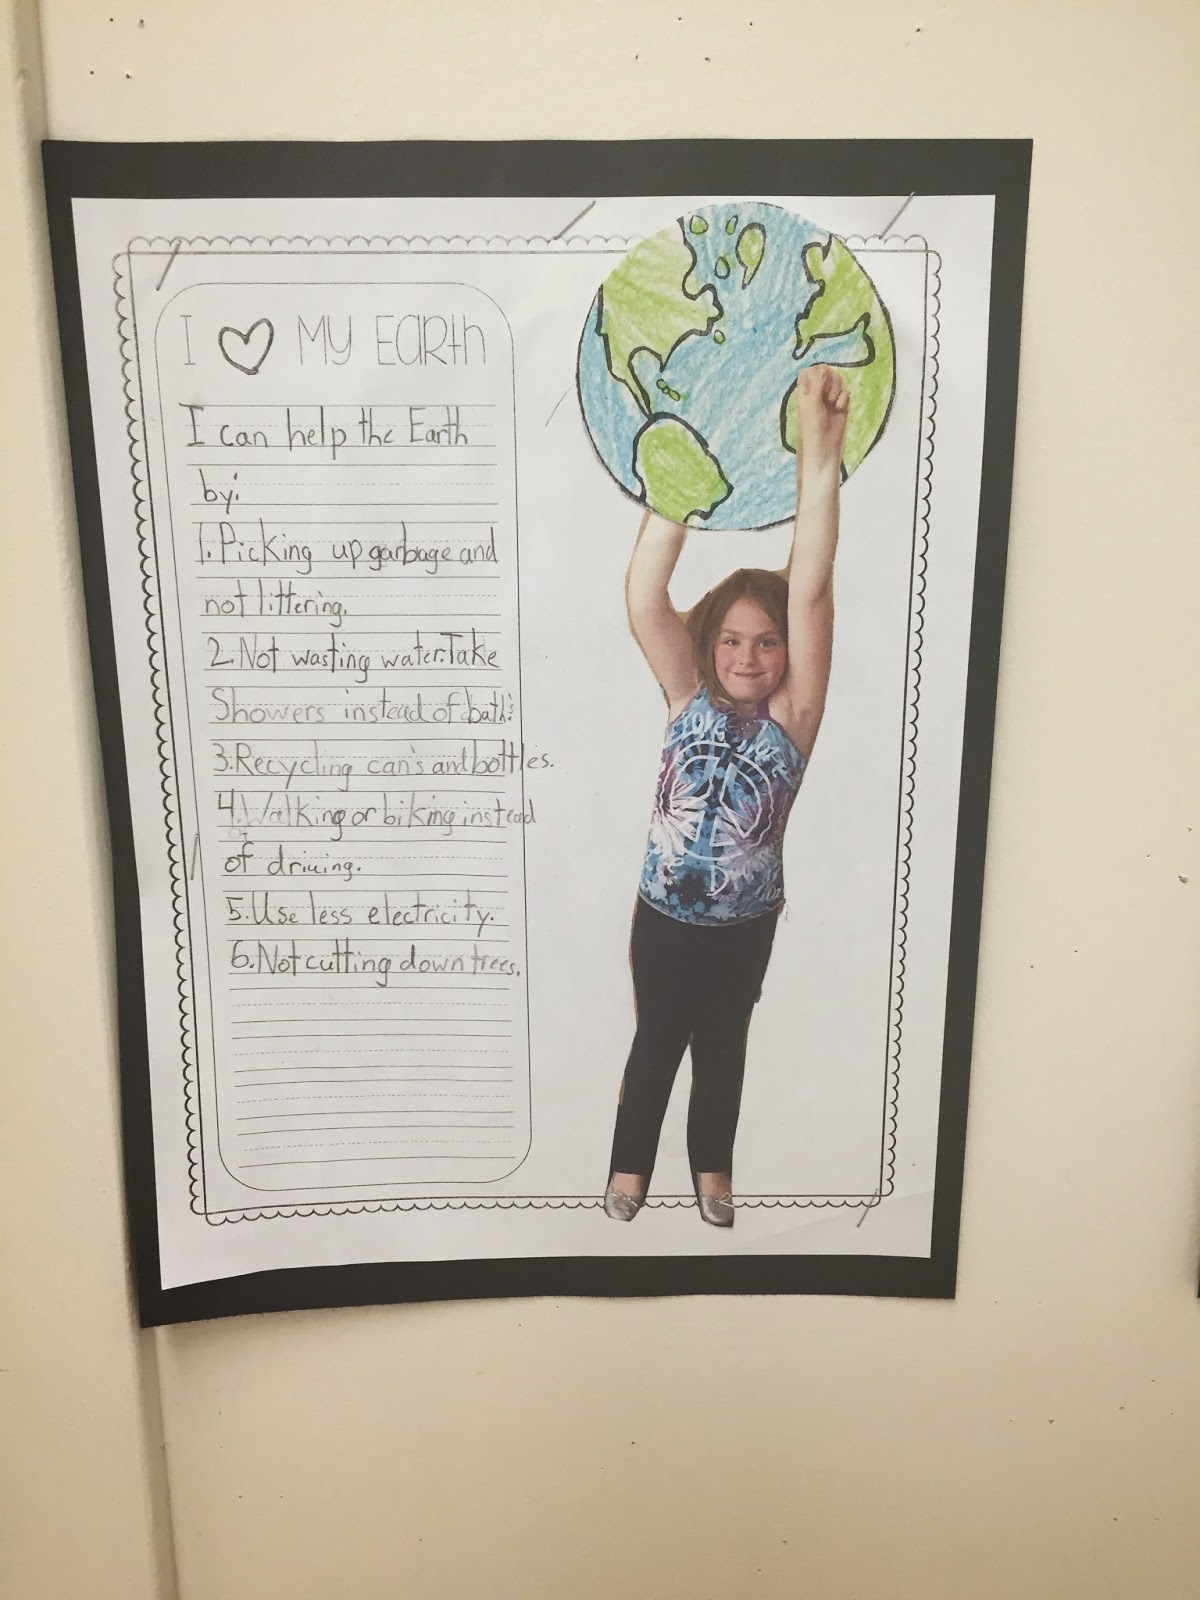 I ♡ My Earth
I can help the Earth
by:
1. Picking up garbage and
not littering.
2. Not wasting water. Take
Showers instead of bath's.
3. Recycling can's and bottles.
4. Walking or biking instead
of driving.
5. Use less electricity.
6. Not cutting down trees.